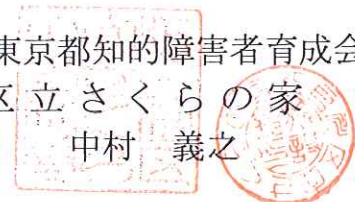 東京都知的障害者育成会
区立さくらの家
中村 義之